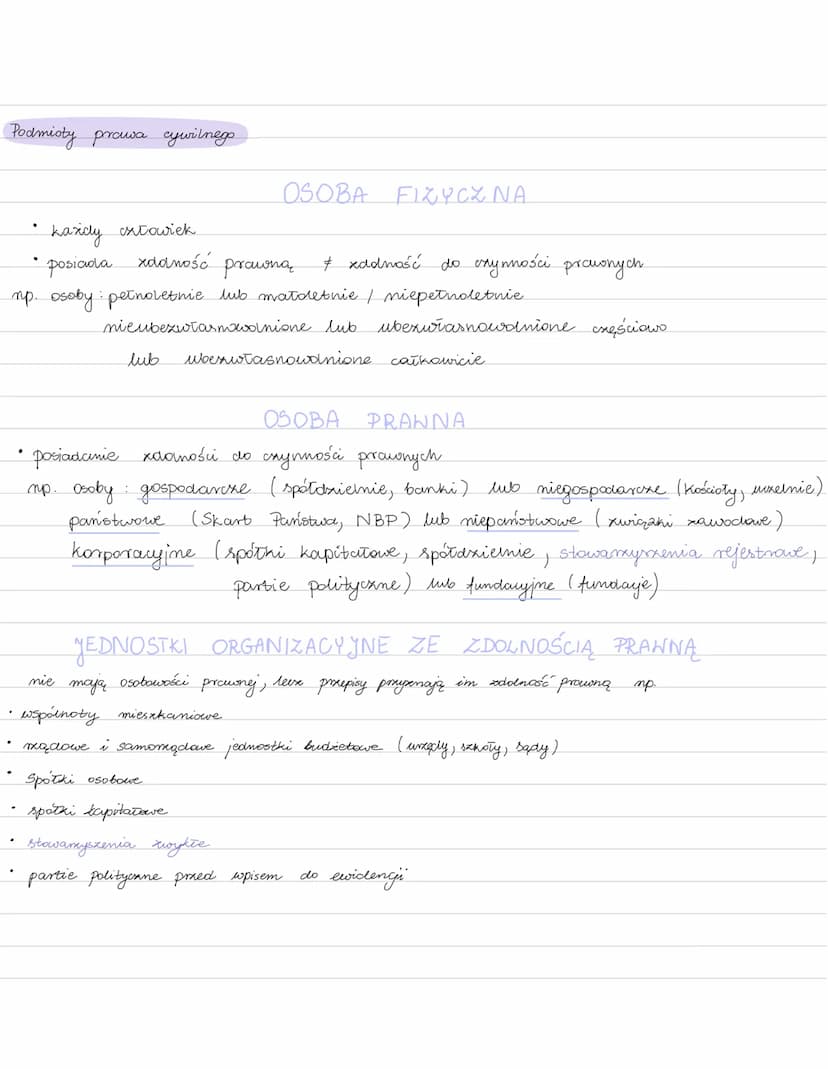 Podmioty prawa cywilnego
OSOBA FIZYCZNA
• każdy człowiek
• posiada zdolność prawną ≠ zdolność do czynności prawnych
np. osoby: pełnoletnie lub małoletnie / niepełnoletnie
nieubezwłasnowolnione lub ubezwłasnowolnione częściowo
lub ubezwłasnowolnione całkowicie
OSOBA PRAWNA
• posiadanie zdolności do czynności prawnych
np. osoby: gospodarcze (spółdzielnie, banki) lub niegospodarcze (Kościoły, uczelnie)
państwowe (Skarb Państwa, NBP) lub niepaństwowe (związki zawodowe)
korporacyjne (spółki kapitałowe, spółdzielnie, stowarzyszenia rejestrowe,
partie polityczne) lub fundacyjne (fundacje)
JEDNOSTKI ORGANIZACYJNE ZE ZDOLNOŚCIĄ PRAWNĄ
nie mają osobowości prawnej, lecz przepisy przyznają im zdolność prawną np.
• wspólnoty mieszkaniowe
• rządowe i samorządowe jednostki budżetowe (urzędy, szkoły, sądy)
• Spółki osobowe
• spółki kapitałowe
• stowarzyszenia zwykłe
• partie polityczne przed wpisem do ewidencji